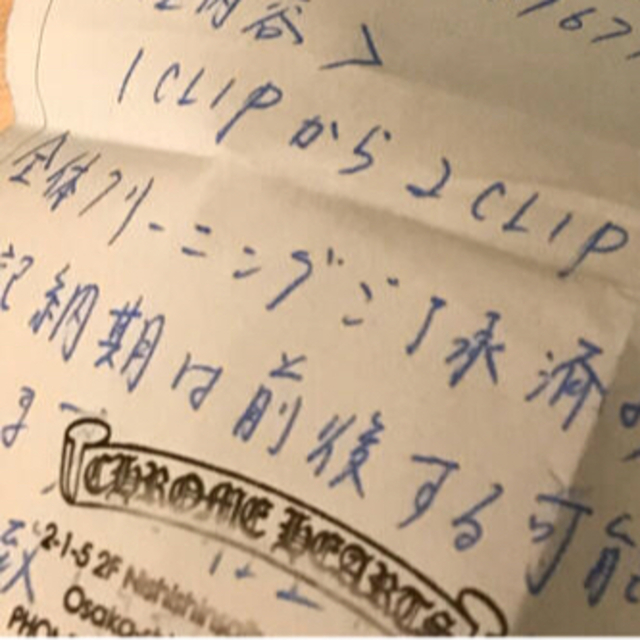 内容＞
1CLIPから2CLIP
全体クリーニングご了承済の
記納期は前後する可能
ま
CHROME HEARTS
2-1-5 2F Nishishinsai
Osaka
PHO